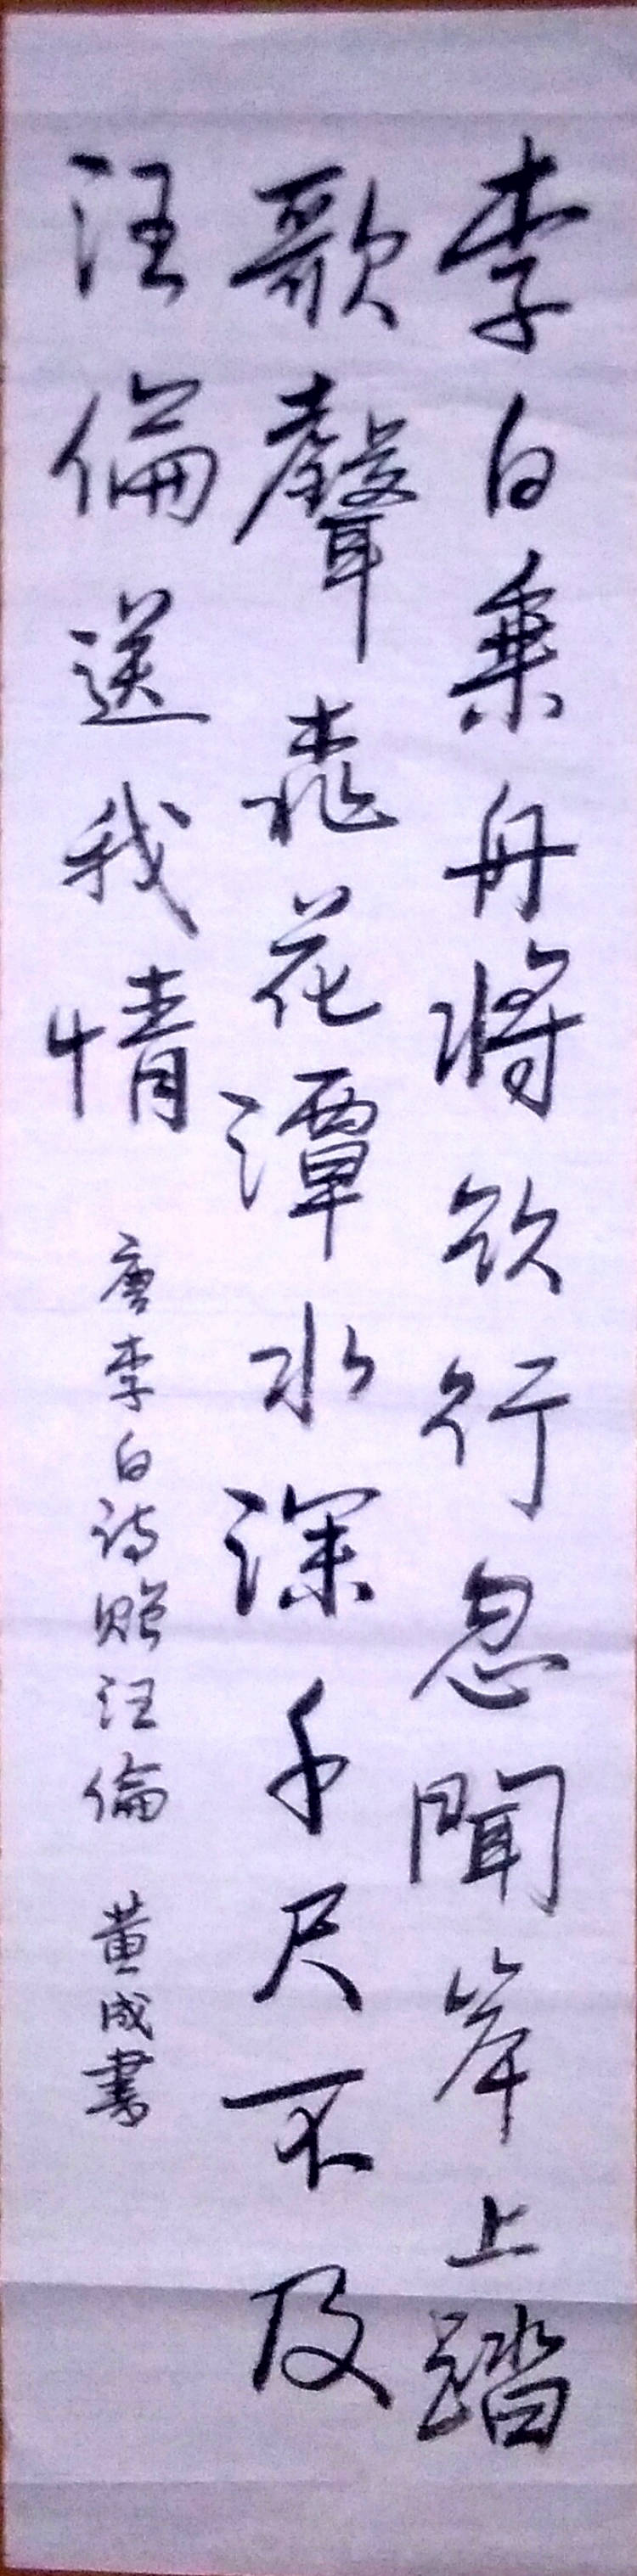 李白乗舟将欲行忽聞岸上踏
歌聲桃花潭水深千尺不及
汪倫送我情
唐李白詩贈汪倫 黄成書